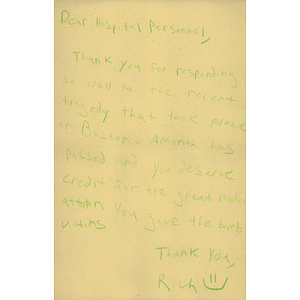 Dear Hospital Personnel,
Thank you for responding
so well to the recent
tragedy that took place
in Boston. A month has
passed and you deserve
credit for the great
you gave the bomb
victims
Thank You,
Rich